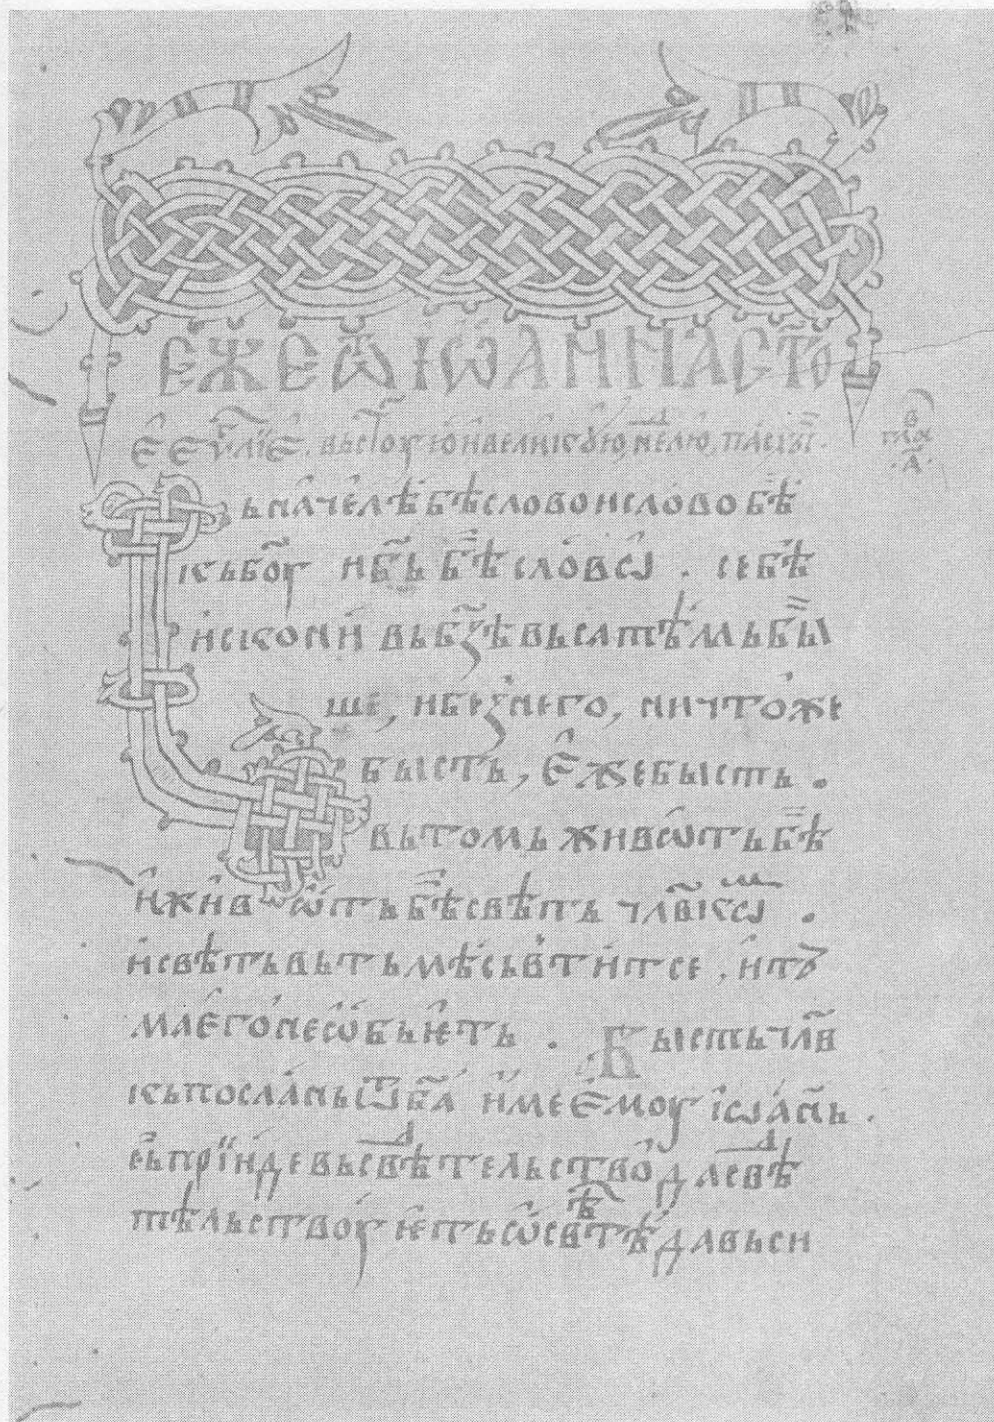 ЕЖЕ Ѿ ІѠАННА СТ҃О
Е ЕѴ҃ЛІЕ. ВЬ СТ҃ОУЮ И ВЕЛИКОУЮ, НЕД҃ЛЮ, ПАСХЫ҃.
в҃
гла
.а҃.
ь начелѣ бѣ слово и слово бѣ
кь боу҃ и бь҃ бѣ словѡ . се бѣ
искони вь бѕ҃ѣ вьса тѣмь бы҃
ше, и беꙁ него, ничтоже
бысть, Еже бысть .
вь томь живѡть бѣ
и живѡть бѣ свѣть чл҃вкѡм .
и свѣть вь тьмѣ сьвтитсе , и тꙋ
ма Его не ѡбьѥть . Бысть чл҃в
кь послань ѿ ба҃ име Емоу іѡан҃ь .
сь пріиде вь свѣдтельство да свѣд
тѣльствоуѥть ѡ свѣтѣ да вьси